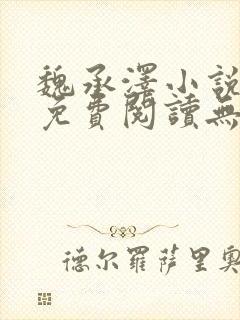 魏承澤小說
免費閱讀無
德尔羅萨里奧